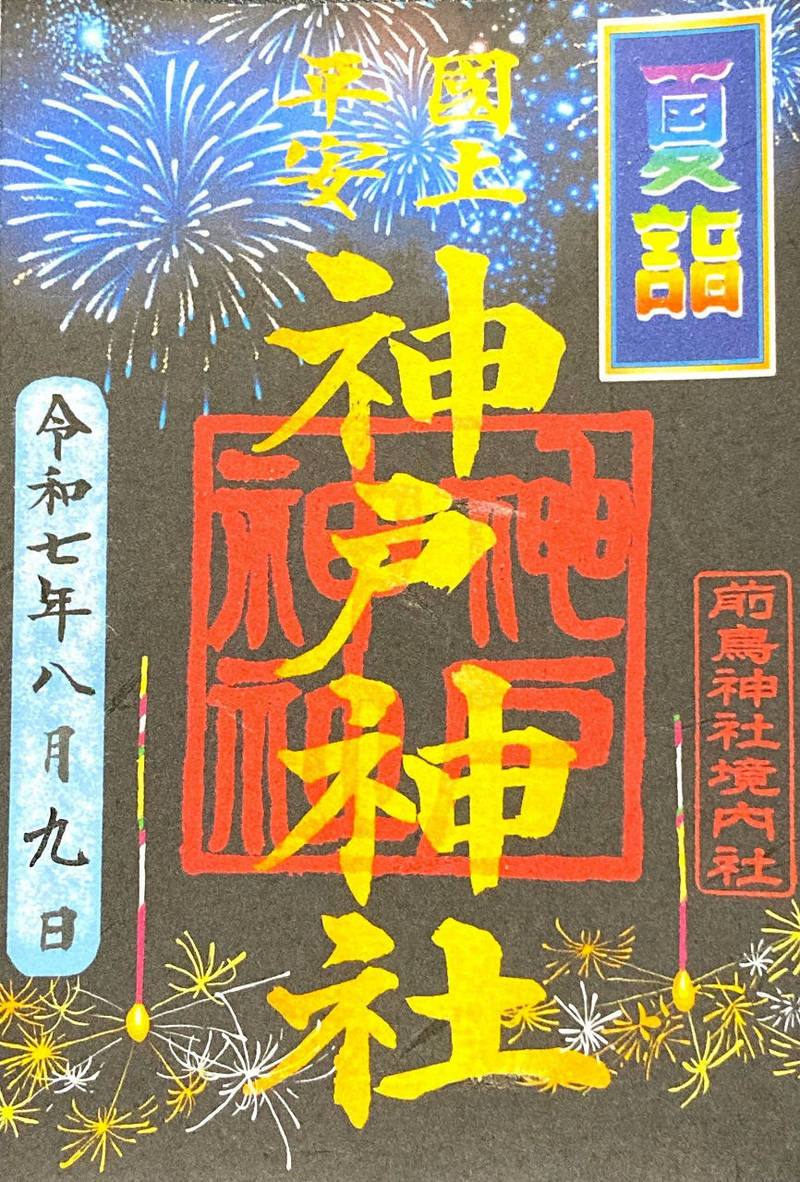 夏詣
國土
平安
神戸神社
前鳥神社境内社
令和七年八月九日